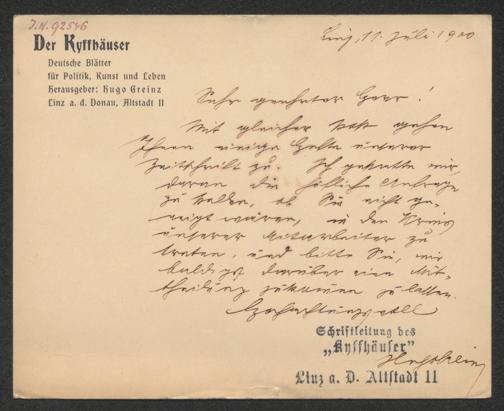 I.N. 92546
Der Kyffhäuser
Deutsche Blätter
für Politik, Kunst und Leben
Herausgeber: Hugo Greinz
Linz a. d. Donau, Altstadt 11
Linz, 11. Juli 1900
Sehr geehrter Herr!
Mit gleicher Post gehen
Ihnen einige Hefte unserer
Zeitschrift zu. Ich gestatte mir,
daran die höfliche Anfrage
zu stellen, ob Sie nicht ge-
neigt wären, in den Kreis
unserer Mitarbeiter zu
treten, und bitte Sie, mir
baldigst darüber eine Mit-
theilung zukommen zu lassen.
Hochachtungsvoll
Schriftleitung des
„Kyffhäuser"
Hugo Greinz
Linz a. D. Altstadt 11